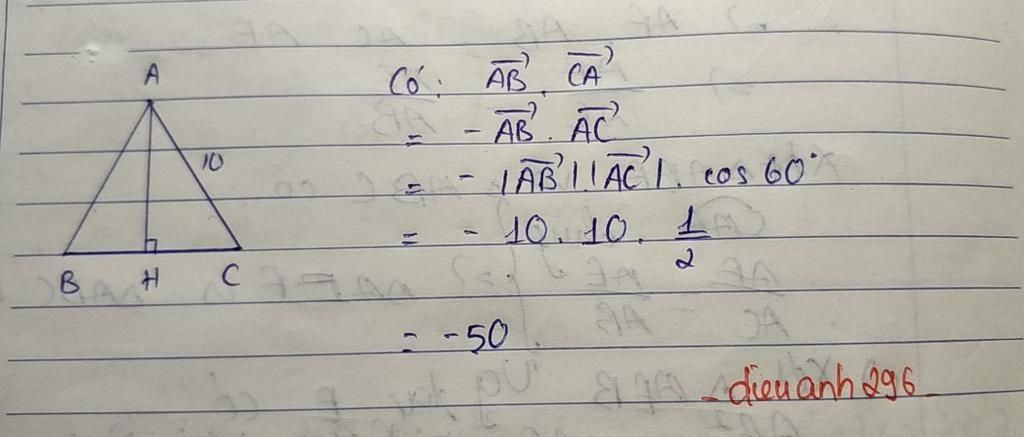 A
10
B H C
Có: \overrightarrow{AB} . \overrightarrow{CA}
= - \overrightarrow{AB} . \overrightarrow{AC}
= - |\overrightarrow{AB}| |\overrightarrow{AC}| . cos 60°
= - 10 . 10 . \frac{1}{2}
= -50
- dieuanh296 -